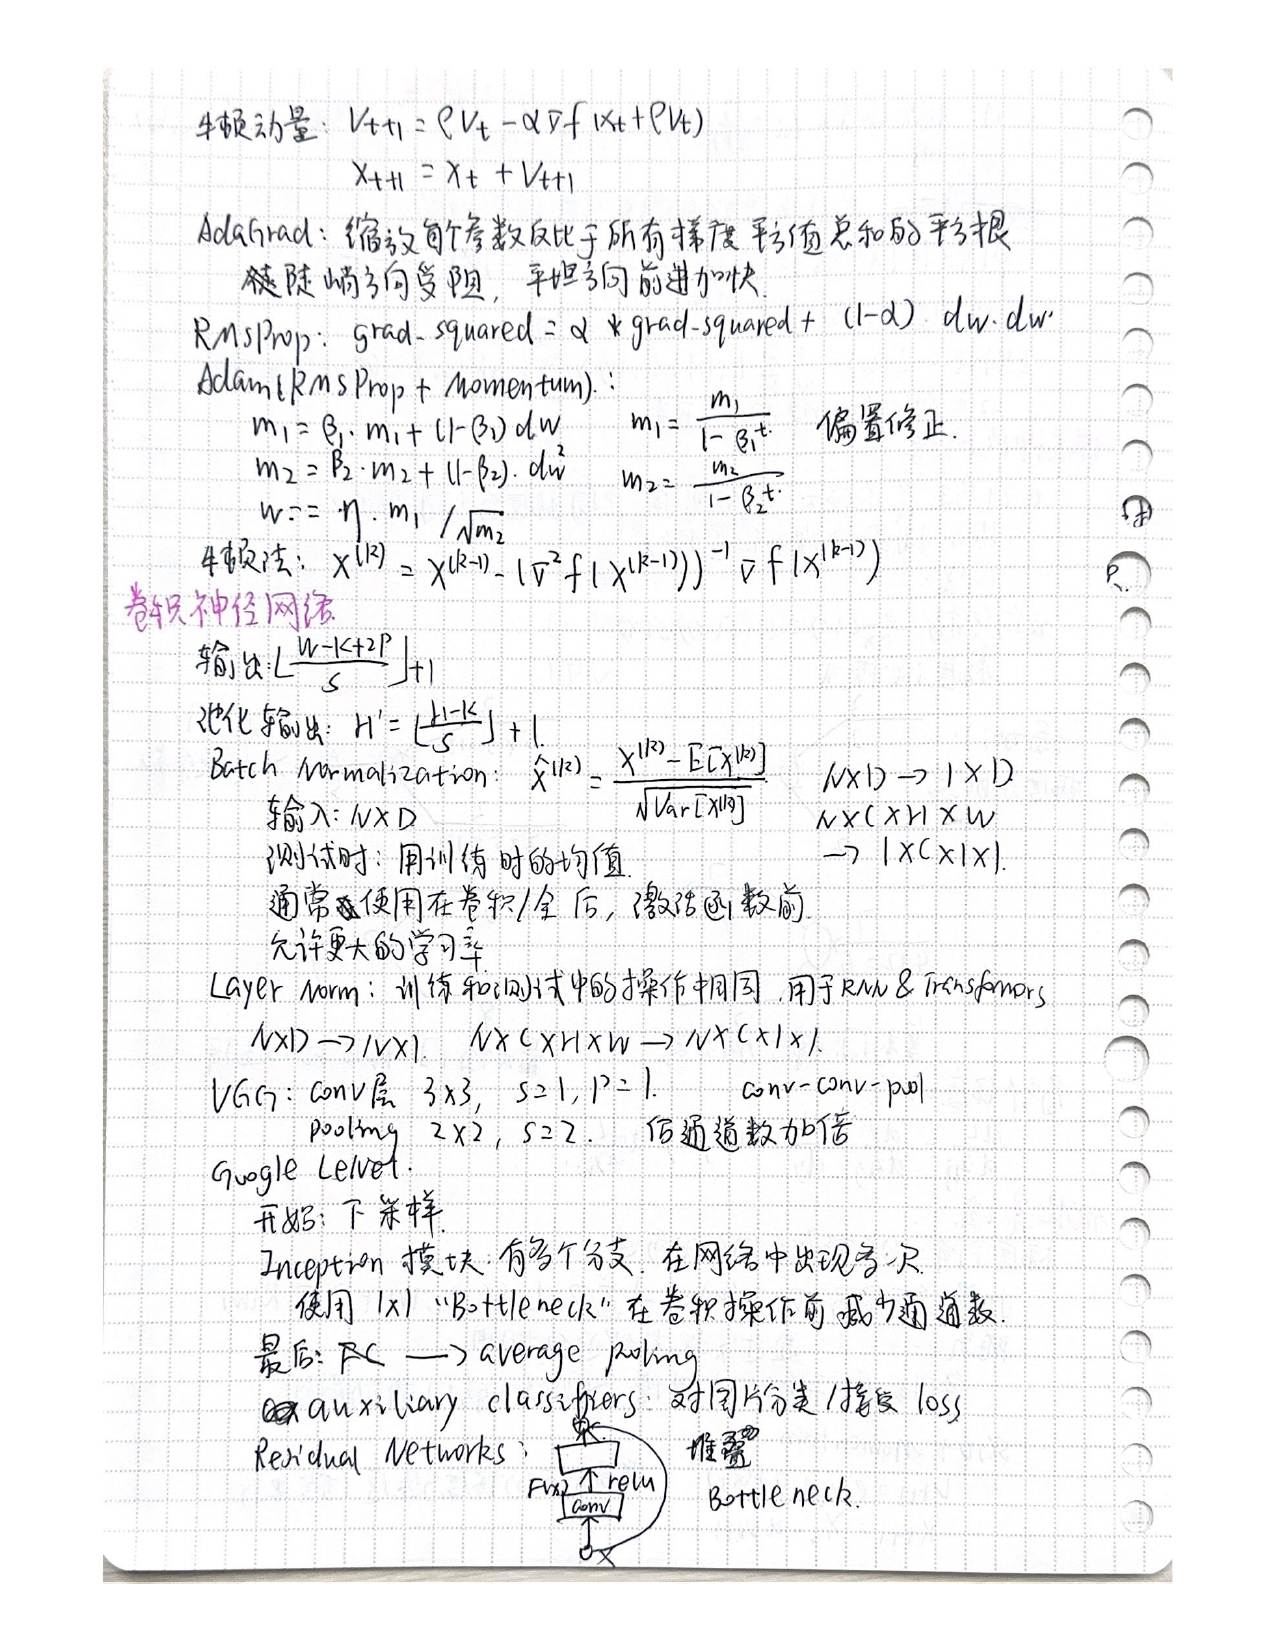 牛顿动量: V_{t+1} = ρV_t - α∇f(x_t+ρV_t)
x_{t+1} = x_t + V_{t+1}
AdaGrad: 缩放每个参数反比于所有梯度平方值总和的平方根
陡峭方向受阻, 平坦方向前进加快.
RMSProp: grad-squared = α * grad-squared + (1-α) dw·dw·
Adam(RMSProp + Momentum):
m₁ = β₁·m₁ + (1-β₁)dw m₁ = m₁/(1-β₁^t) 偏置修正.
m₂ = β₂·m₂ + (1-β₂)·dw² m₂ = m₂/(1-β₂^t)
w -= η·m₁/√m₂
牛顿法: x^(k) = x^(k-1) - (∇²f(x^(k-1)))^-1 ∇f(x^(k-1))
卷积神经网络
输出: ⌊(W-K+2P)/S⌋+1
池化输出: H' = ⌊(H-K)/S⌋ + 1.
Batch Normalization: x̂^(k) = (x^(k) - E[x^(k)])/√Var[x^(k)] N×D → 1×D
输入: N×D N×C×H×W
测试时: 用训练时的均值. → 1×C×1×1.
通常使用在卷积/全后, 激活函数前
允许更大的学习率
Layer Norm: 训练和测试中的操作相同. 用于RNN & Transfomors
N×D → N×1. N×C×H×W → N×C×1×1.
VGG: conv层 3×3, S=1, P=1. conv-conv-pool
pooling 2×2, S=2. 后通道数加倍
Google LeNet.
开始: 下采样.
Inception 模块: 有多个分支. 在网络中出现多次
使用 1×1 "Bottleneck" 在卷积操作前减少通道数.
最后: FC → average pooling
auxiliary classifiers: 对图片分类/接受 loss
Residual Networks: 堆叠
F(x) relu
Bottleneck.
conv
X